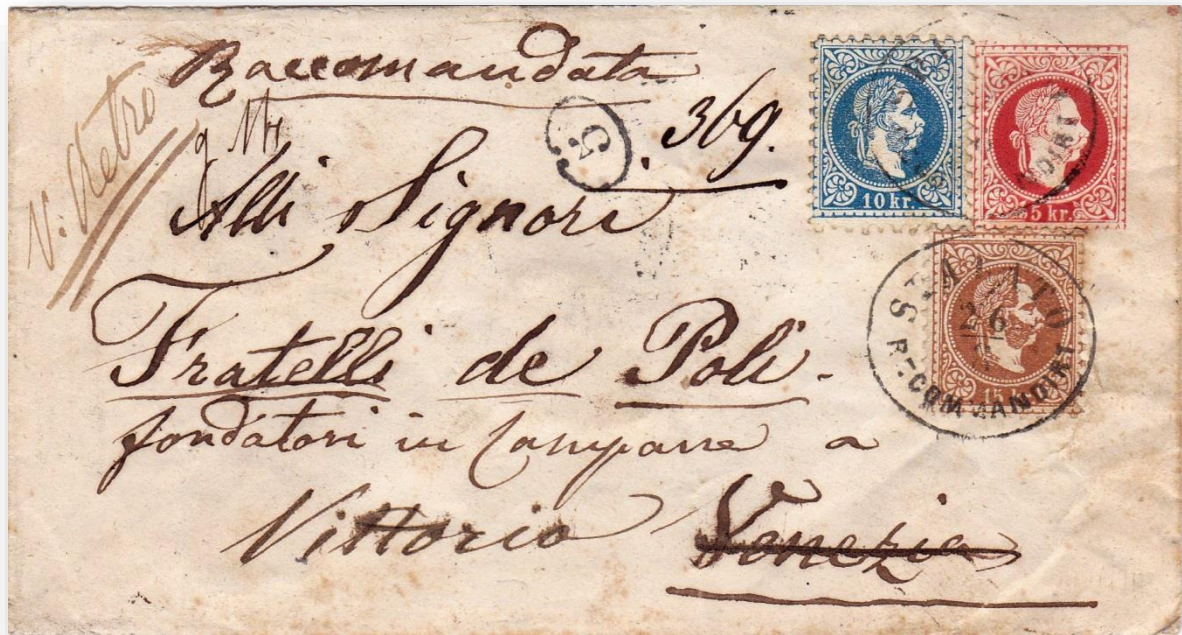 Raccomandata
369.
V. Retro
5
Alli Signori
Fratelli de Poli.
fonditori in Campane a
Vittorio Venezia
10 kr.
5 kr.
15
SPALATO
26
RECOMMANDIRT
DIRT